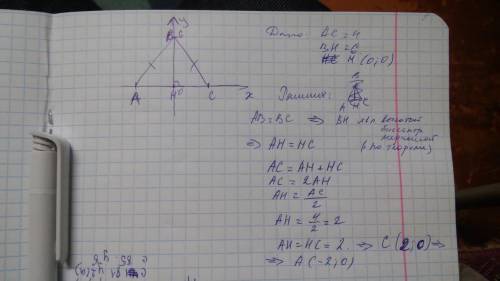 y
B
C
A
H
0
C
x
Дано: AC = 4
BH = 6
H (0;0)
Решение:
B
A H C
AB = BC ⇒ BH явл. высотой
биссектр
медианой
(по теореме)
⇒ AH = HC
AC = AH + HC
AC = 2AH
AH = AC/2
AH = 4/2 = 2
AH = HC = 2 ⇒ C(2;0) ⇒
⇒ A(-2;0)